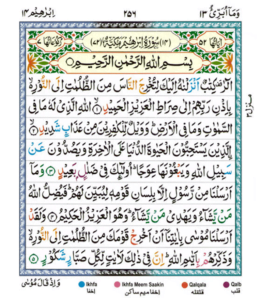 وَمَآ اُبَرِّئُ ١٣ ٢٥٦ اِبْرٰهِيْم ١٤
اٰيَاتُهَا ٥٢ (١٤) سُوْرَةُ اِبْرٰهِيْمَ مَكِّيَّةٌ (٧٢) رُكُوْعَاتُهَا ٧
بِسْمِ اللّٰهِ الرَّحْمٰنِ الرَّحِيْمِ
الٓرٰ كِتٰبٌ اَنْزَلْنٰهُ اِلَيْكَ لِتُخْرِجَ النَّاسَ مِنَ الظُّلُمٰتِ اِلَى النُّوْرِ
بِاِذْنِ رَبِّهِمْ اِلٰى صِرَاطِ الْعَزِيْزِ الْحَمِيْدِ ۙ‏﴿١﴾ اللّٰهِ الَّذِيْ لَهٗ مَا فِي
السَّمٰوٰتِ وَمَا فِي الْاَرْضِ وَوَيْلٌ لِّلْكٰفِرِيْنَ مِنْ عَذَابٍ شَدِيْدِ ﴿٢﴾
الَّذِيْنَ يَسْتَحِبُّوْنَ الْحَيٰوةَ الدُّنْيَا عَلَى الْاٰخِرَةِ وَيَصُدُّوْنَ عَنْ
سَبِيْلِ اللّٰهِ وَيَبْغُوْنَهَا عِوَجًا اُولٰٓئِكَ فِيْ ضَلٰلٍ بَعِيْدٍ ﴿٣﴾ وَمَآ
اَرْسَلْنَا مِنْ رَّسُوْلٍ اِلَّا بِلِسَانِ قَوْمِهٖ لِيُبَيِّنَ لَهُمْ فَيُضِلُّ اللّٰهُ
مَنْ يَّشَآءُ وَيَهْدِيْ مَنْ يَّشَآءُ وَهُوَ الْعَزِيْزُ الْحَكِيْمُ ﴿٤﴾ وَلَقَدْ
اَرْسَلْنَا مُوْسٰى بِاٰيٰتِنَآ اَنْ اَخْرِجْ قَوْمَكَ مِنَ الظُّلُمٰتِ اِلَى النُّوْرِ
وَذَكِّرْهُمْ بِاَيّٰىمِ اللّٰهِ اِنَّ فِيْ ذٰلِكَ لَاٰيٰتٍ لِّكُلِّ صَبَّارٍ شَكُوْرٍ ﴿٥﴾
وَاِذْ قَالَ مُوْسٰى
Ikhfa Ikhfa Meem Saakin Qalqala Qalb
اخفا اخفا میم ساکن قلقلہ قلب